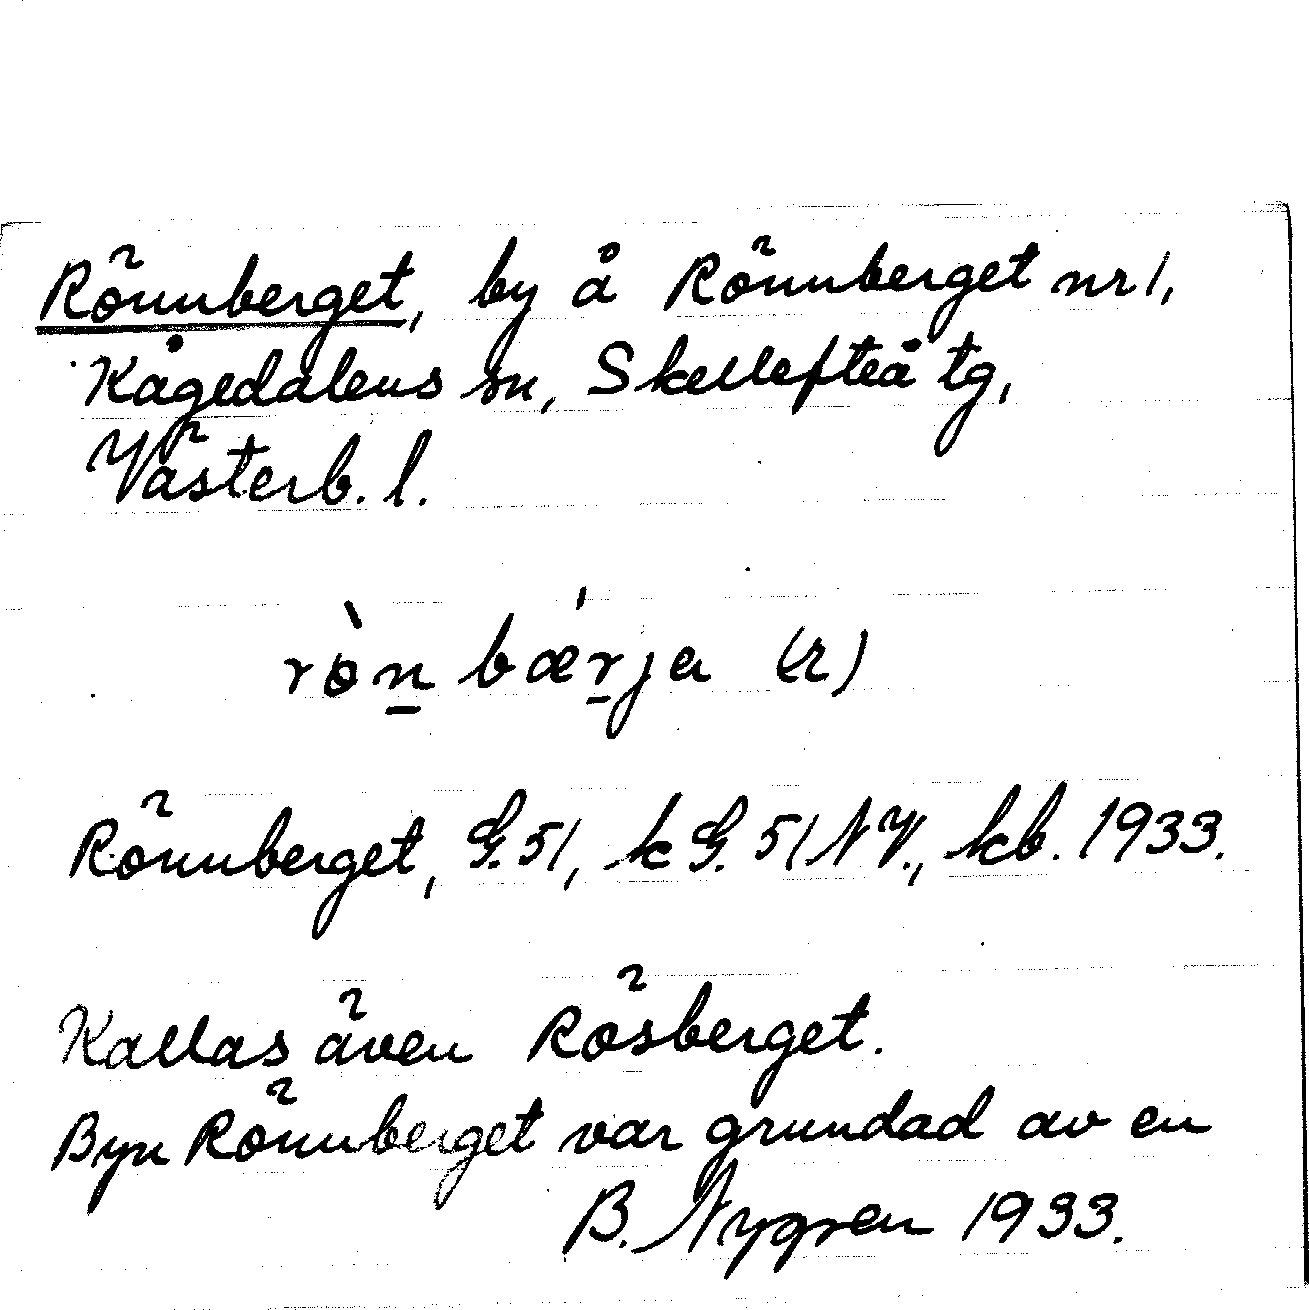 Rönnberget, by å Rönnberget nr 1,
Kågedalens sn, Skellefteå tg,
Västerb. l.
rò̀n bǽrja (r)
Rönnberget, G. 51, k G. 51 NV., kb. 1933.
Kallas även Rösberget.
Byn Rönnberget var grundad av en
B. Nygren 1933.